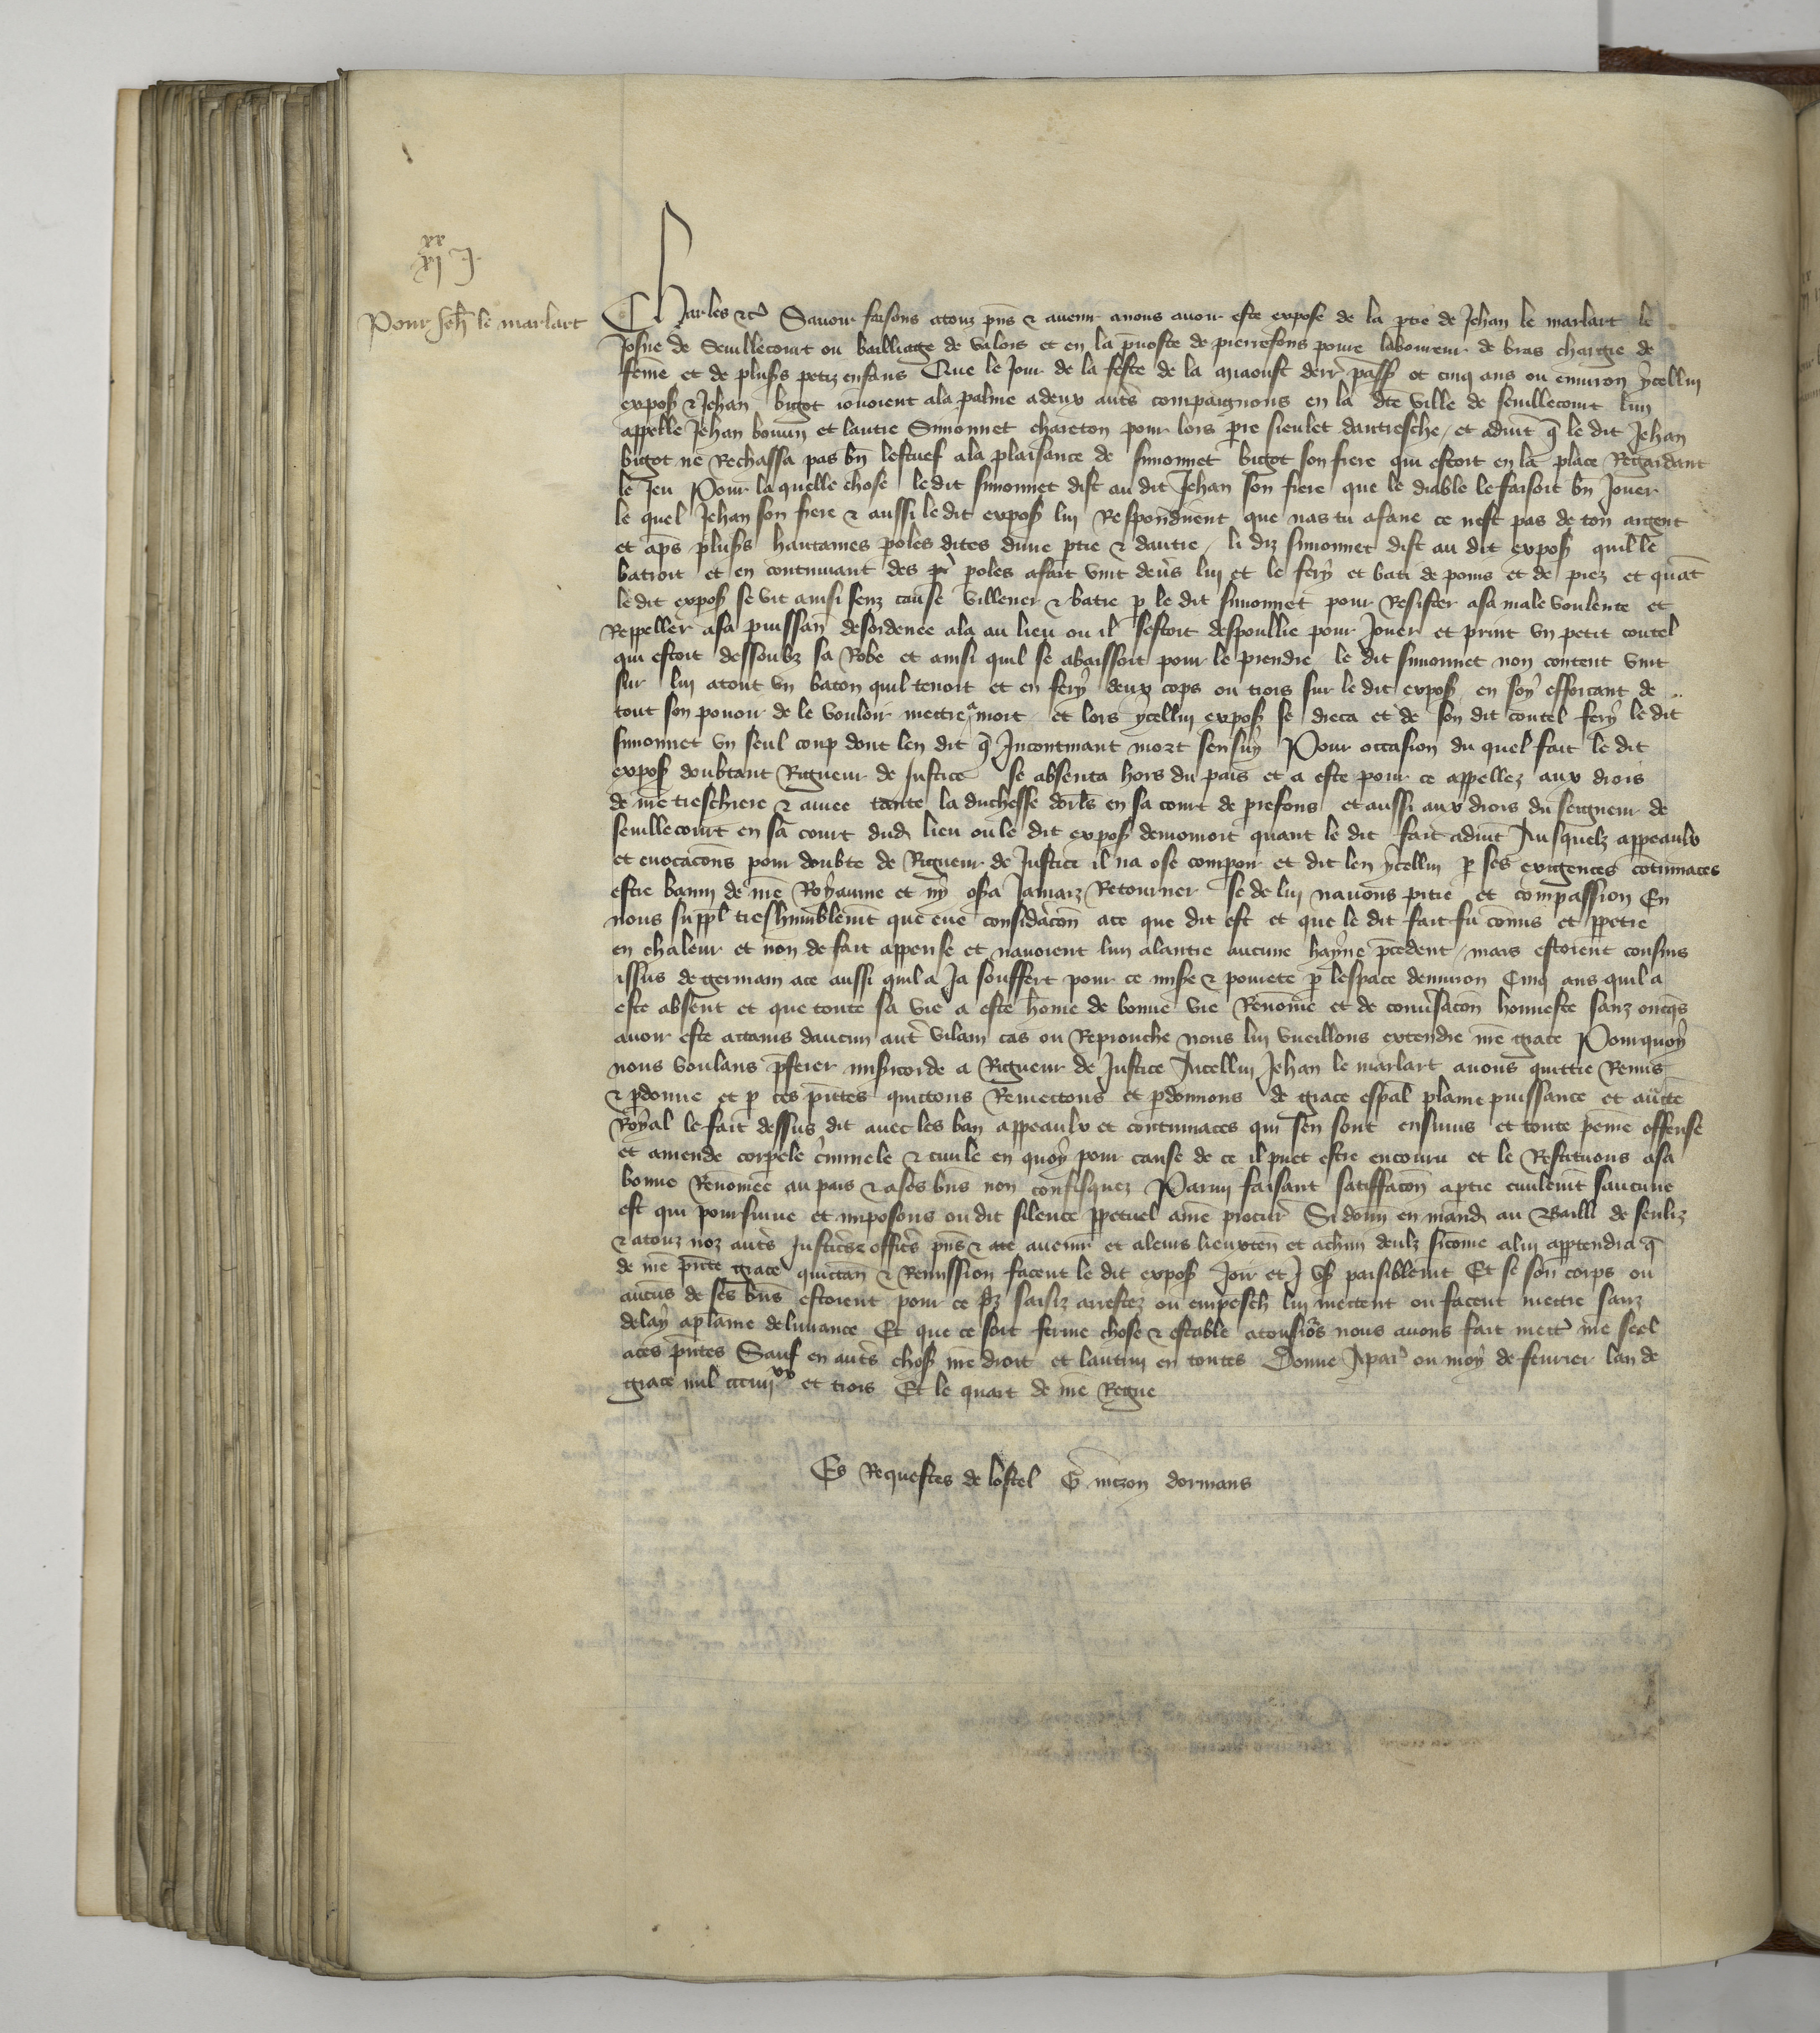 xx
xi J.
Pour Jeh̄ le marlart
Charles etc̄ Sauoir faisons atouz p̄ns ⁊ auenir anous auoir este expose de la ptie de Jehan le marlart le
Josne de Seuillecourt ou bailliage de Valois et en la p̄uoste de pierrefons poure laboureur de bras chargie de
fem̄e et de plus̄s petiz enfans Que le Jour de la feste de la miaoust derr̄ pass̄ ot cinq ans ou enuiron ycellui
expos̄ ⁊ Jehan bigot iouoient ala palme adeux aut̄s compaignons en la dc̄e ville de seuillecourt lun
appelle Jehan bouuin et lautre Simonnet chareton pour lors pr̄e sieulet dautresche / et aduit q̄ le dit Jehan
bigot ne Rechassa pas bn̄ lestuef ala plaisance de simonnet bigot son frere qui estoit en la place Regardant
le Jeu Pour la quelle chose le dit simonnet dist au dit Jehan son frere que le diable le faisoit bn̄ Jouer
le quel Jehan son frere ⁊ aussi le dit expos̄ lui Respondirent que nas tu afaire ce nest pas de ton argent
et ap̄s plus̄s hautaines p̄oles dites dune ptie ⁊ dautre / li diz simonnet dist au dit expos̄ quil le
batroit et en continuant des p̄oles afait vint deūs lui et le fery et bati de poins et de piez et quāt
le dit expos̄ se vit ainsi senz cause villener ⁊ batre p le dit simonnet pour Resister asa male voulente et
Reppeller asa puissan̄ desordenee ala au lieu ou il sestoit despoullie pour Jouer et print vn petit coutel
qui estoit dessoubz sa Robe et ainsi quil se abaissoit pour le prendre le dit simonnet non content vint
sur lui atout vn baton quil tenoit et en fery deux cops ou trois sur le dit expos̄ en soy efforcant de
tout son pouoir de le vouloir mettre a mort et lors ycellui expos̄ se dreca et de son dit coutel fery le dit
simonnet vn seul coup dont len dit q̄ Incontinant mort sensuy Pour occasion du quel fait le dit
expos̄ doubtant Rigueur de Justice se absenta hors du pais et a este pour ce appellez aux drois
de nr̄e treschiere ⁊ amee tante la duchesse dorl̄s en sa court de prefons et aussi aux drois du seigneur de
seuillecourt en sa court dud lieu ou le dit expos̄ demouroit quant le dit fait aduīt Ausquelz appeaulx
et euocacōns pour doubte de Rigueur de Justice il na ose compoir et dit len ycellui p ses exigences cōtumaces
estre banni de nr̄e Royaume et ny osa Jamaiz Retourner se de lui nauons pitie et compassion En
nous suppl̄ treshumblemt̄ que eue consid̄acōn ace que dit est et que le dit fait fu cōmis et ppetre
en chaleur et non de fait appense et nauoient lun alautre aucune hayne p̄cedent / mais estoient cousins
issus de germain ace aussi quil a Ja souffert pour ce mis̄e ⁊ pourete p lespace denuiron Cinq ans quil a
este absent et que toute sa vie a este hōme de bonne vie Renōmee et de conūsacōn honneste sanz oncq̄s
auoir este attains daucun aut̄ vilain cas ou Reprouche nous lui vueillons extendre nr̄e grace Pourquoy
nous voulans p̄ferer mis̄icorde a Rigueur de Justice Aicellui Jehan le marlart auons quittie Remis
⁊ pdonne et p ces p̄ntes quictons Remectons et pdonnons de grace esp̄al plaine puissance et auct̄e
Royal le fait dessus dit auec les ban appeaulx et contumaces qui sen sont ensuius et toute peine offense
et amende corpele c̄minele ⁊ ciuile en quoy pour cause de ce il puet estre encouru et le Restituons asa
bonne Renōmee au pais ⁊ ases bn̄s non confisquez Parmi faisant satiffacōn aptie ciuilemt̄ saucune
est qui poursuiue et imposons ou dit silence ppetuel anr̄e procur̄ Si donn̄ en mand̄ au Baill̄ de senliz
⁊ atouz noz aut̄s Justic̄s⁊ offic̄s p̄ns ⁊ a auenir et aleurs lieuxten̄ et achūn deulz sicōme alui apptendra q̄
de nr̄e p̄nte grace quittan̄ ⁊ Remission facent le dit expos̄ Joir et vs̄ paisiblemt̄ Et se son corps ou
aucuns de ses bn̄s estoient pour ce p̄z saisiz arrestez ou empesch̄ lui mettent ou facent mettre sanz
delay aplaine deliurance Et que ce soit ferme chose ⁊ estable atousio᷑s nous auons fait mett̄ nr̄e seel
aces p̄ntes Sauf en aut̄s chos̄ nr̄e droit et lautrui en toutes Donne Apar̄ ou moys de feurier lan de
grace mil ccc iiiixx et trois Et le quart de nr̄e Regne
Es Requestes de lostel G mezon dormans